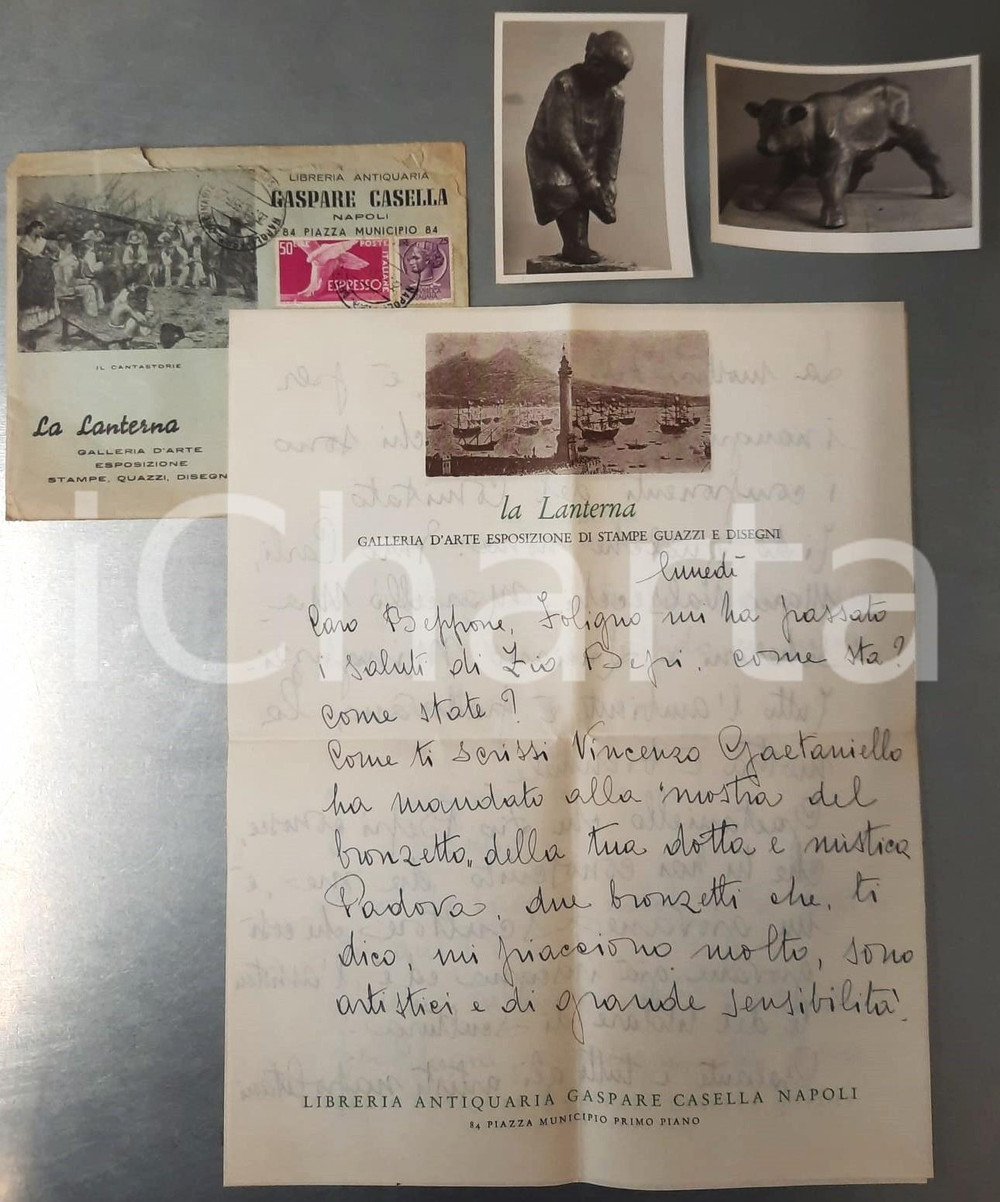 LIBRERIA ANTIQUARIA
GASPARE CASELLA
NAPOLI
84 PIAZZA MUNICIPIO 84
50 LIRE POSTE ITALIANE
ESPRESSO
25
IL CANTASTORIE
La Lanterna
GALLERIA D'ARTE
ESPOSIZIONE
STAMPE, QUAZZI, DISEGN
la Lanterna
GALLERIA D'ARTE ESPOSIZIONE DI STAMPE GUAZZI E DISEGNI
lunedì
Caro Beppone, Foligno mi ha passato
i saluti di Zio Bepi. come sta?
come state?
Come ti scrissi Vincenzo Gaetaniello
ha mandato alla "mostra del
bronzetto" della tua dotta e mistica
Padova, due bronzetti che, ti
dico, mi piacciono molto, sono
artistici e di grande sensibilità.
LIBRERIA ANTIQUARIA GASPARE CASELLA NAPOLI
84 PIAZZA MUNICIPIO PRIMO PIANO
iCharta